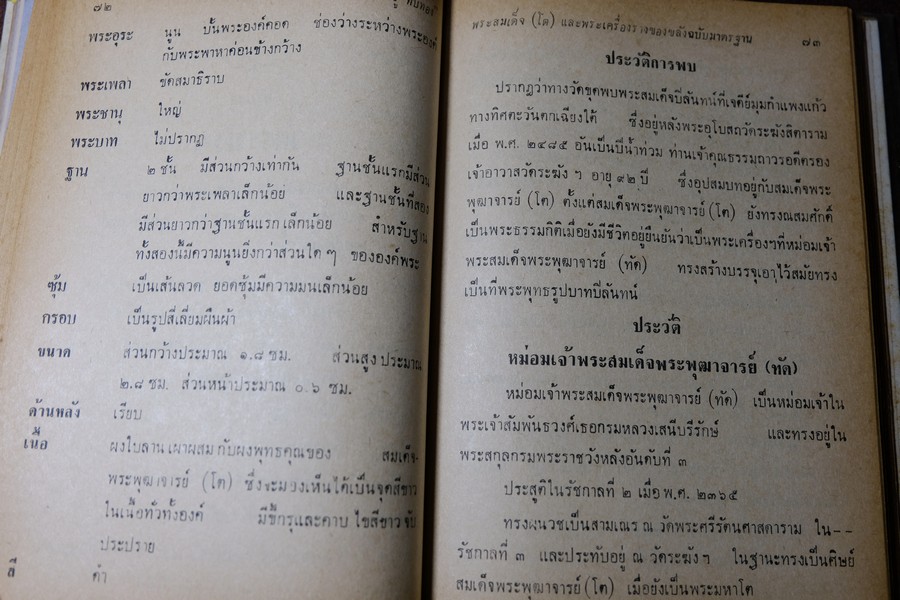 ๗๒
พระอุระ นูน บั้นพระองค์คอด ช่องว่างระหว่างพระองค์
กับพระพาหาค่อนข้างกว้าง
พระเพลา ขัดสมาธิราบ
พระชานุ ใหญ่
พระบาท ไม่ปรากฏ
ฐาน ๒ ชั้น มีส่วนกว้างเท่ากัน ฐานชั้นแรกมีส่วน
ยาวกว่าพระเพลาเล็กน้อย และฐานชั้นที่สอง
มีส่วนยาวกว่าฐานชั้นแรกเล็กน้อย สำหรับฐาน
ทั้งสองนี้มีความนูนยิ่งกว่าส่วนใด ๆ ขององค์พระ
ซุ้ม เป็นเส้นลวด ยอดซุ้มมีความมนเล็กน้อย
กรอบ เป็นรูปสี่เลี่ยมผืนผ้า
ขนาด ส่วนกว้างประมาณ ๑.๘ ซม. ส่วนสูง ประมาณ
๒.๘ ซม. ส่วนหน้าประมาณ ๐.๖ ซม.
ด้านหลัง เรียบ
เนื้อ ผงใบลาน เผาผสม กับผงพุทธคุณของ สมเด็จ-
พระพุฒาจารย์ (โต) ซึ่งจะมองเห็นได้เป็นจุดสีขาว
ในเนื้อทั่วทั้งองค์ มีขี้กรุและคาบ ไขสีขาว จับ
ประปราย
สี ดำ
พระสมเด็จ (โต) และพระเครื่องรางของขลังฉบับมาตรฐาน ๗๓
ประวัติการพบ
ปรากฏว่าทางวัดขุดพบพระสมเด็จปิลันทน์ที่เจดีย์มุมกำแพงแก้ว
ทางทิศตะวันตกเฉียงใต้ ซึ่งอยู่หลังพระอุโบสถวัดระฆังสิตาราม
เมื่อ พ.ศ. ๒๔๘๕ อันเป็นปีน้ำท่วม ท่านเจ้าคุณธรรมถาวรอดีตรอง
เจ้าอาวาสวัดระฆัง ฯ อายุ ๙๒ ปี ซึ่งอุปสมบทอยู่กับสมเด็จพระ
พุฒาจารย์ (โต) ตั้งแต่สมเด็จพระพุฒาจารย์ (โต) ยังทรงณสมศักดิ์
เป็นพระธรรมกิติเมื่อยังมีชีวิตอยู่ยืนยันว่าเป็นพระเครื่องฯที่หม่อมเจ้า
พระสมเด็จพระพุฒาจารย์ (ทัด) ทรงสร้างบรรจุเอาไว้สมัยทรง
เป็นที่พระพุทธรูปบาทปิลันทน์
ประวัติ
หม่อมเจ้าพระสมเด็จพระพุฒาจารย์ (ทัด)
หม่อมเจ้าพระสมเด็จพระพุฒาจารย์ (ทัด) เป็นหม่อมเจ้าใน
พระเจ้าสัมพันธวงศ์เธอกรมหลวงเสนีบริรักษ์ และทรงอยู่ใน
พระสกุลกรมพระราชวังหลังอันดับที่ ๓
ประสูติในรัชกาลที่ ๒ เมื่อ พ.ศ. ๒๓๖๕
ทรงผนวชเป็นสามเณร ณ วัดพระศรีรัตนศาสดาราม ใน--
รัชกาลที่ ๓ และประทับอยู่ ณ วัดระฆัง ฯ ในฐานะทรงเป็นศิษย์
สมเด็จพระพุฒาจารย์ (โต) เมื่อยังเป็นพระมหาโต